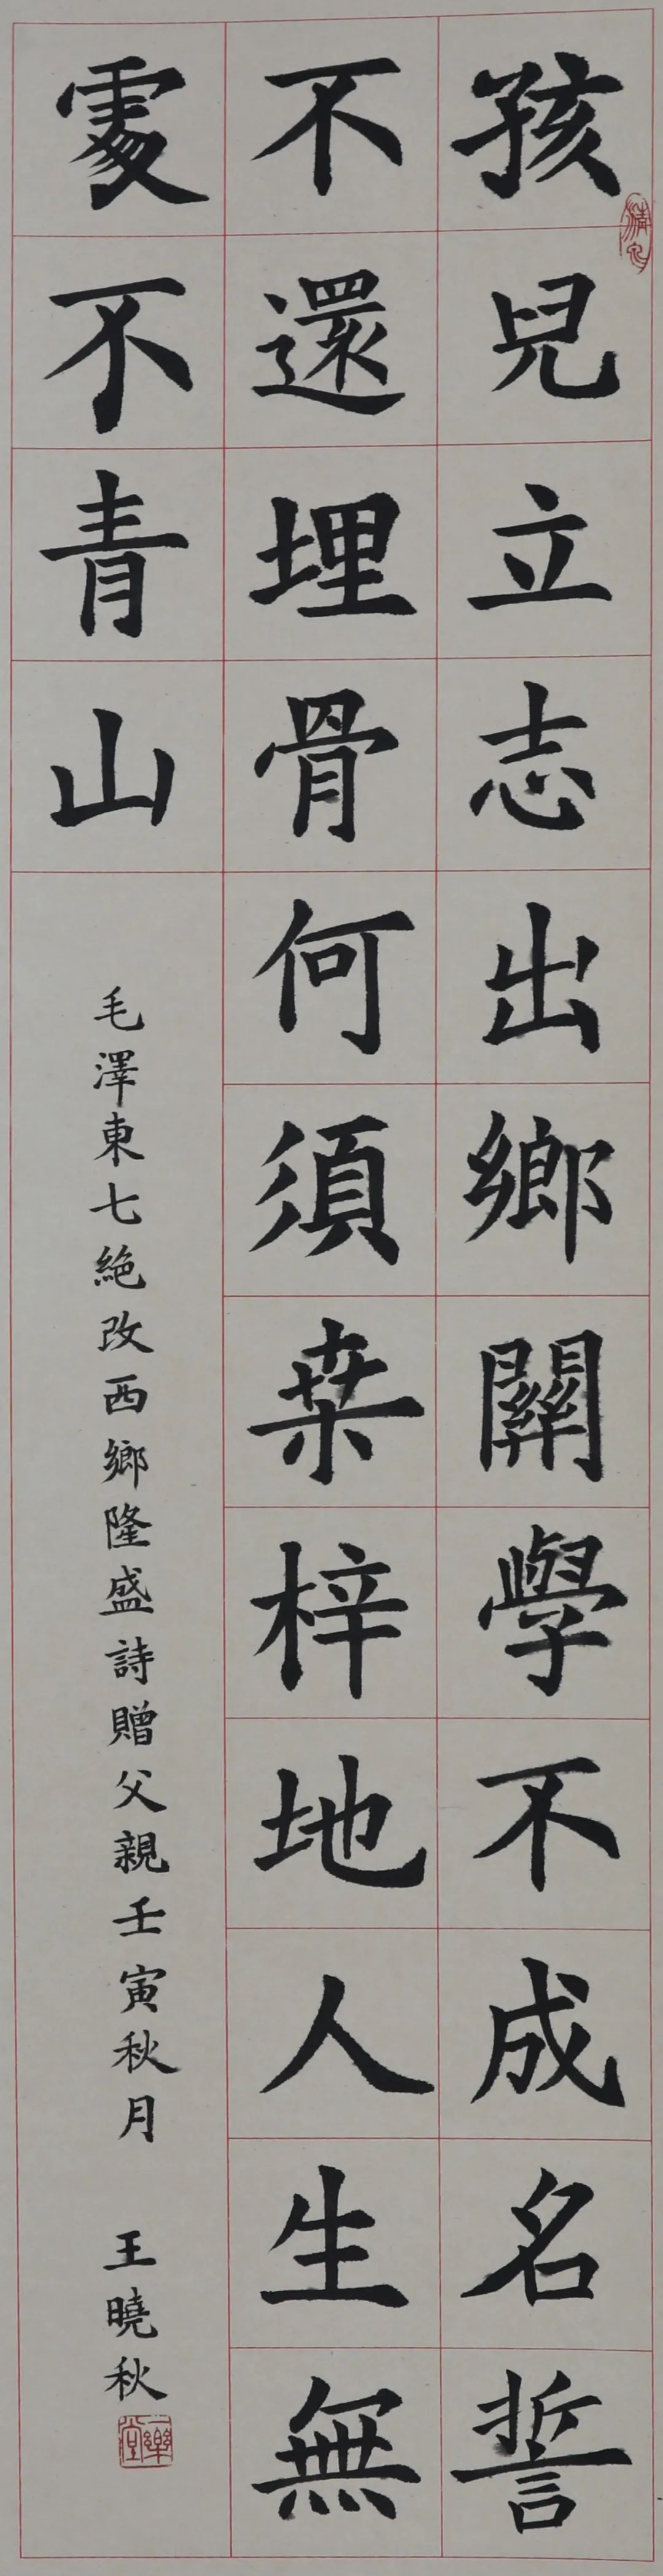 孩兒立志出鄉關學不成名誓
不還埋骨何須桒梓地人生無
處不青山
毛澤東七絶改西鄉隆盛詩贈父親壬寅秋月 王曉秋